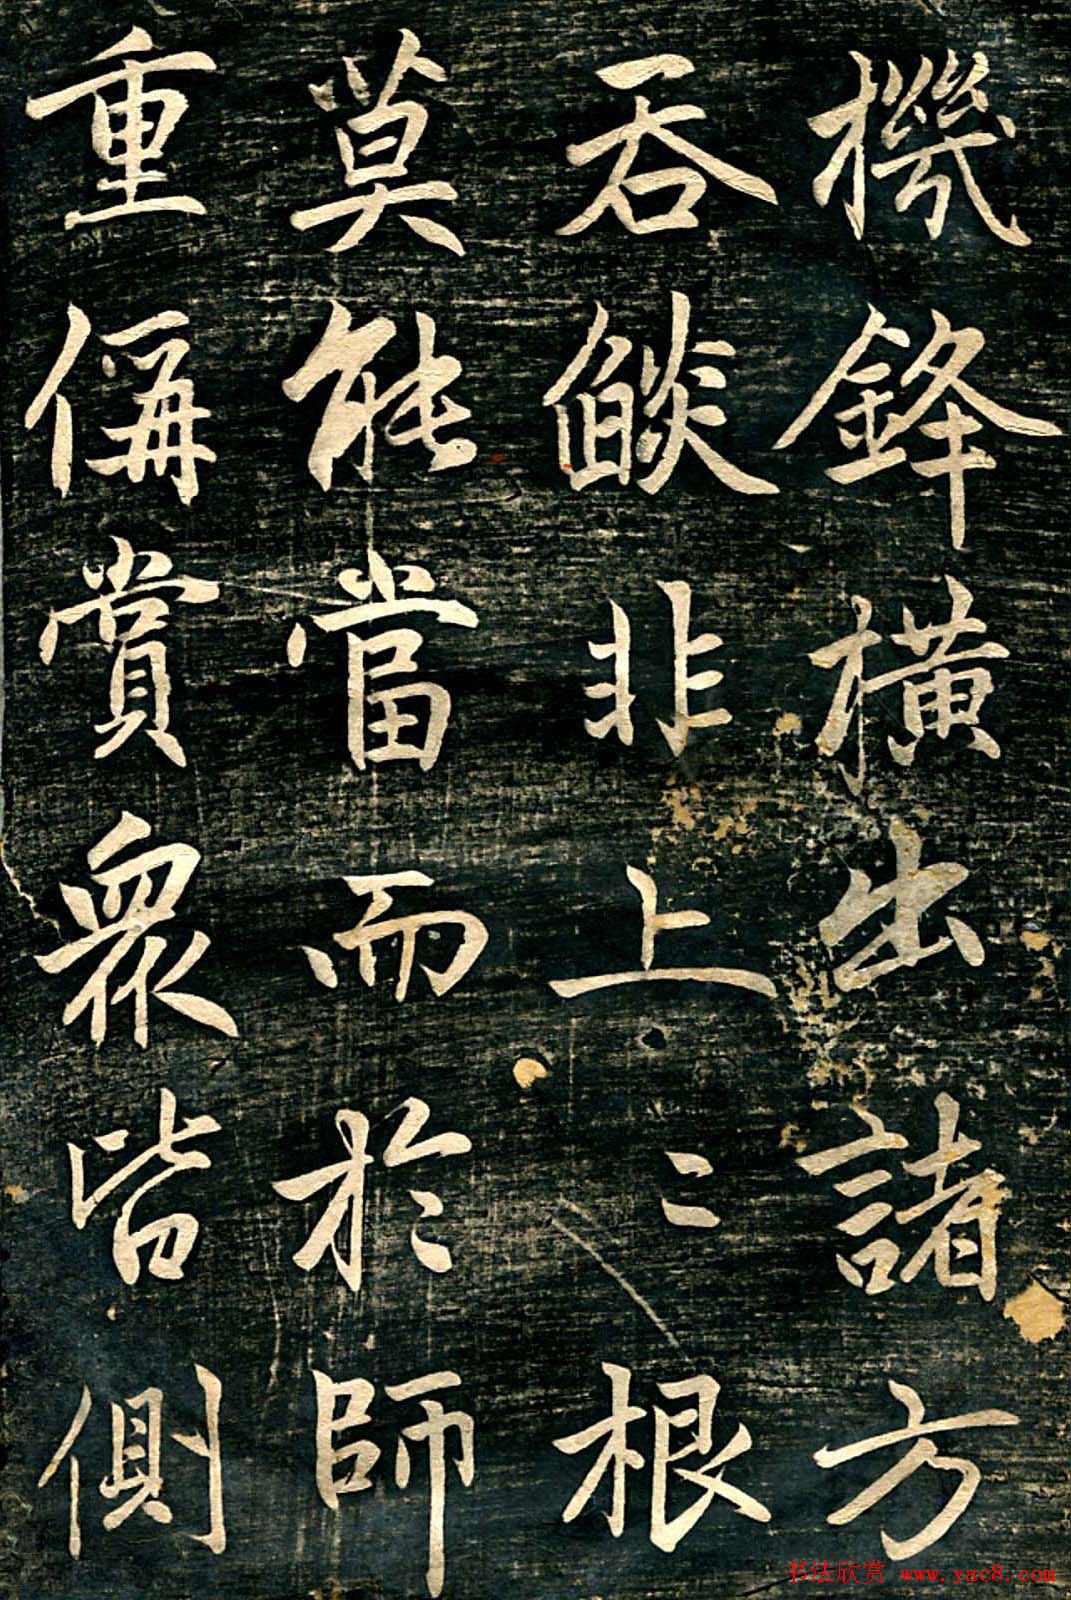 機鋒橫出諸方
吞燄非上〻根
莫能當而於師
重偁賞衆皆側
书法欣赏 www.yac8.com